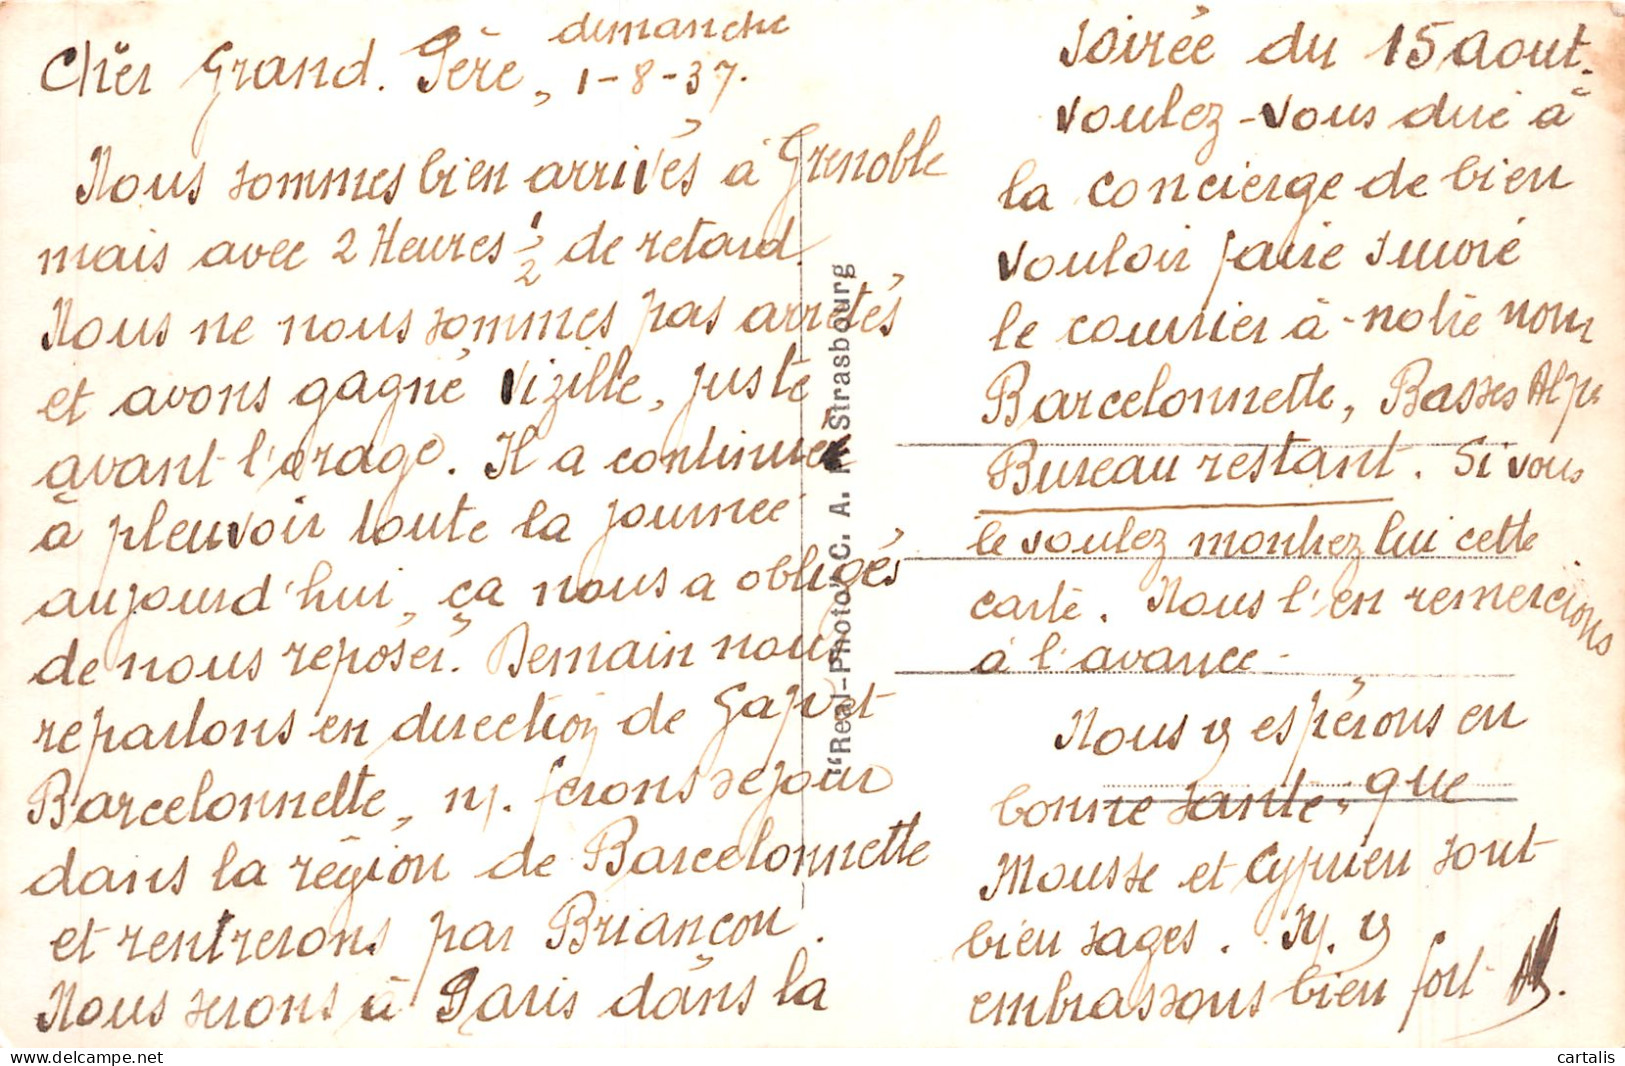 dimanche
Cher Grand. Père, 1-8-37.
Nous sommes bien arrivés à Grenoble
mais avec 2 Heures 1/2 de retard.
Nous ne nous sommes pas arrêtés
et avons gagné Vizille, juste
avant l'orage. Il a continué
à pleuvoir toute la journée
aujourd'hui, ça nous a obligés
de nous reposer. Demain nous
repartons en direction de Gap et
Barcelonnette, n/. ferons séjour
dans la région de Barcelonnette
et rentrerons par Briançon.
Nous serons à Paris dans la
Soirée du 15 Aout.
voulez-vous dire à
la concierge de bien
vouloir faire suivre
le courrier à notre nom
Barcelonnette, Basses Alpes
Bureau restant. Si vous
le voulez montrez lui cette
carte. Nous l'en remercions
à l'avance.
Nous v/ espérons en
bonne santé, que
Mousse et Cyprien sont
bien sages. N/. v/
embrassons bien fort
"Real-Photo" C. A. P. Strasbourg
cartalis